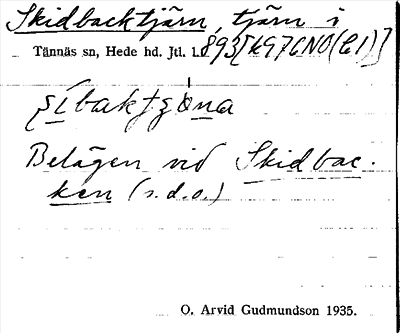 Skidbacktjärn, tjärn i
Tännäs sn, Hede hd. Jtl. l. 893 [k97CNO(C1)]
Belägen vid Skidbac-
ken (s.d.o.)
O. Arvid Gudmundson 1935.